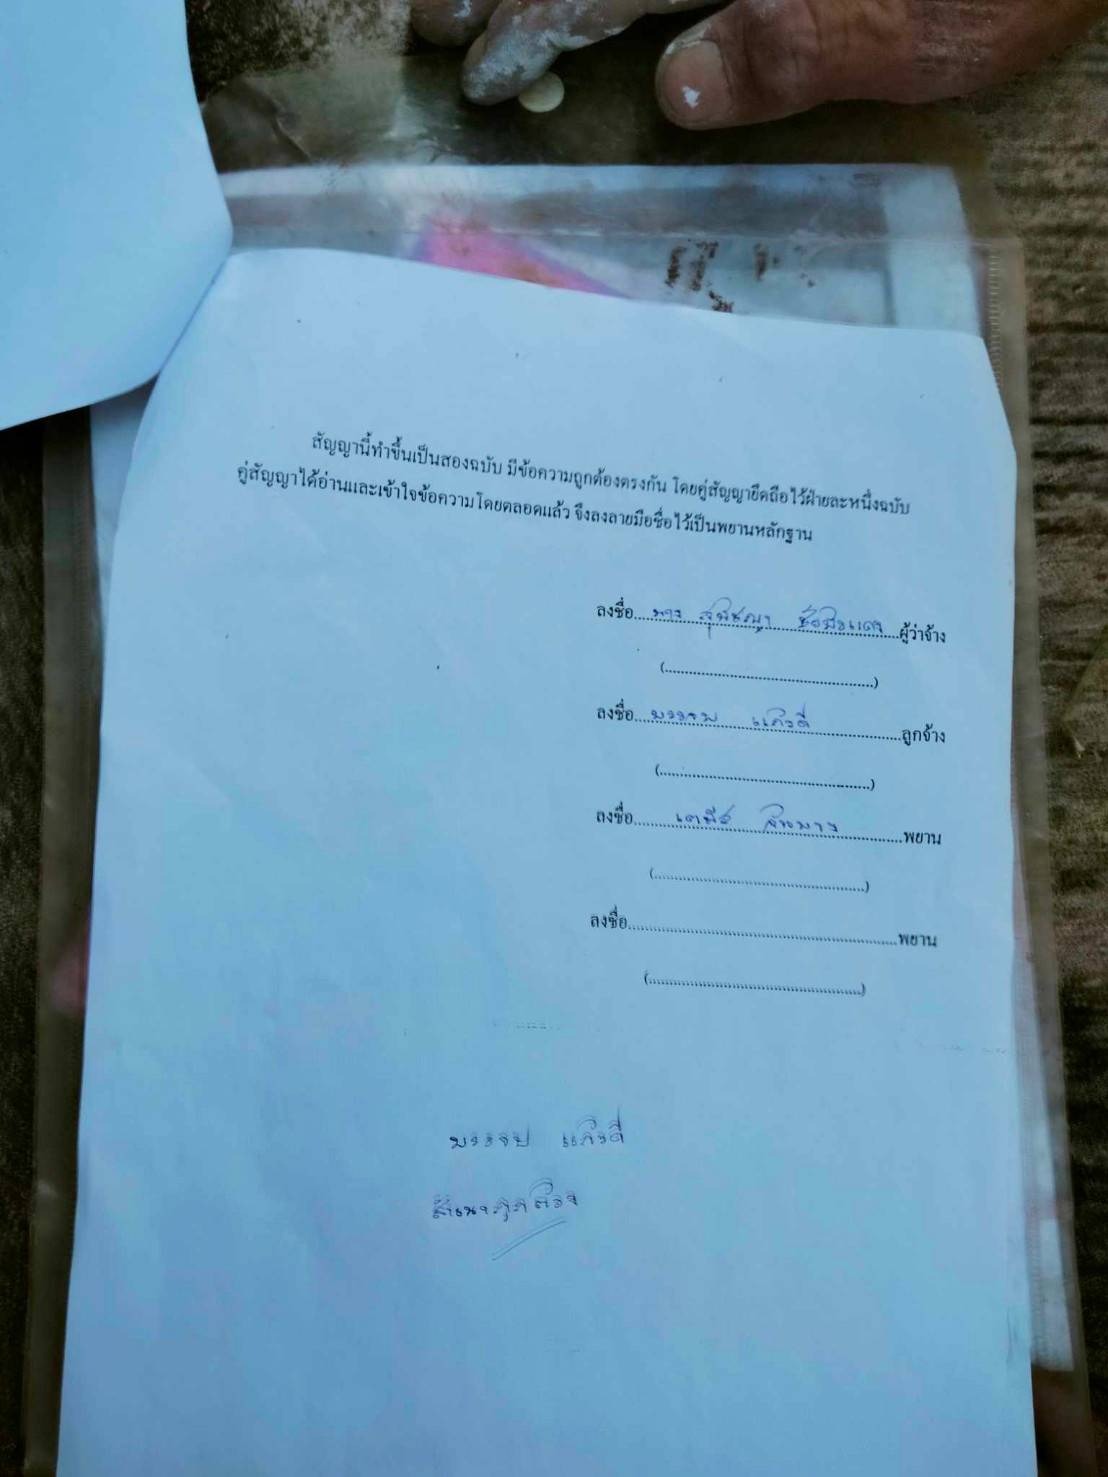 สัญญานี้ทำขึ้นเป็นสองฉบับ มีข้อความถูกต้องตรงกัน โดยคู่สัญญายึดถือไว้ฝ่ายละหนึ่งฉบับ
คู่สัญญาได้อ่านและเข้าใจข้อความโดยตลอดแล้ว จึงลงลายมือชื่อไว้เป็นพยานหลักฐาน
ลงชื่อ...นาง สุพิชญา...ผู้ว่าจ้าง
(...)
ลงชื่อ...แก้วดี...ลูกจ้าง
(...)
ลงชื่อ...พยาน
(...)
ลงชื่อ...พยาน
(...)
แก้วดี
สำเนาถูกต้อง